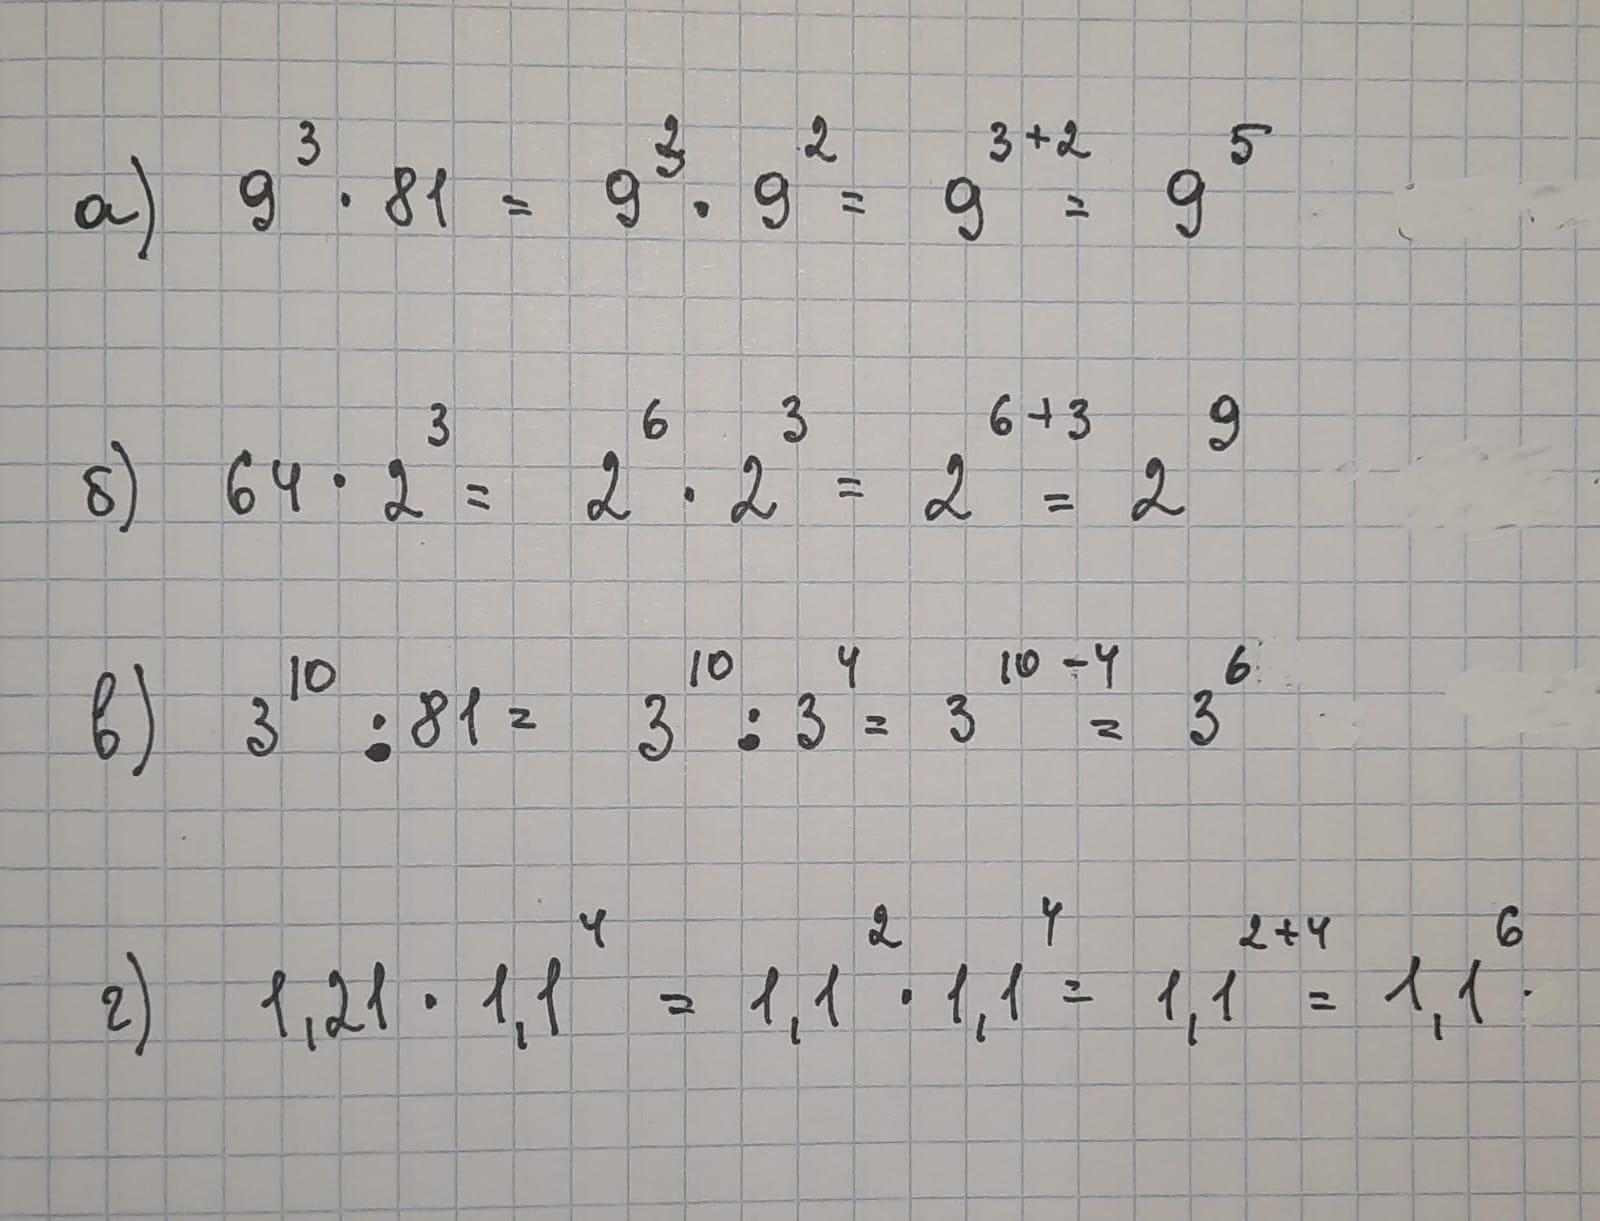 а) 9³ · 81 = 9³ · 9² = 9³⁺² = 9⁵
б) 64 · 2³ = 2⁶ · 2³ = 2⁶⁺³ = 2⁹
в) 3¹⁰ : 81 = 3¹⁰ : 3⁴ = 3¹⁰⁻⁴ = 3⁶
г) 1,21 · 1,1⁴ = 1,1² · 1,1⁴ = 1,1²⁺⁴ = 1,1⁶.